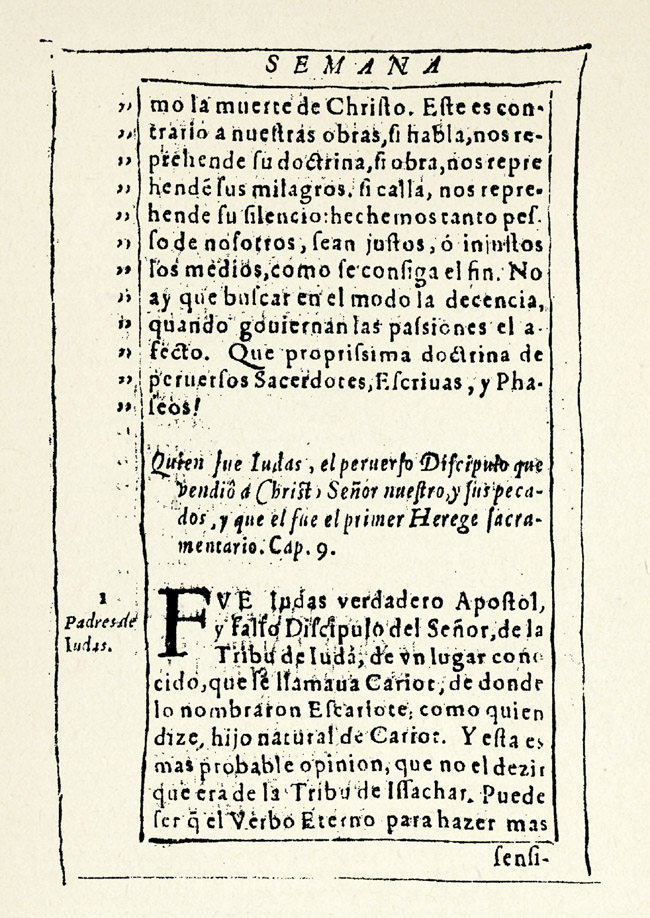 SEMANA
„ mo la muerte de Christo. Este es con-
„ trario a nuestras obras, si habla, nos re-
„ prehende su doctrina, si obra, nos repre
„ hendẽ sus milagros. si calla, nos repre-
„ hende su silencio: hechemos tanto pes-
„ so de nosotros, sean justos, ó injustos
„ los medios, como se consiga el fin. No
„ ay que buscar en el modo la decencia,
„ quando gouiernan las passiones el a-
„ fecto. Que proprissima doctrina de
„ peruersos Sacerdotes, Escriuas, y Pha-
„ seos!
Quien fue Iudas, el peruerso Discipulo que
vendiò a Christo Señor nuestro, y sus peca-
dos, y que el fue el primer Herege sacra-
mentario. Cap. 9.
1
Padres de
Iudas.
FVE Iudas verdadero Apostol,
y falso Discipulo del Señor, de la
Tribu de Iudá, de vn lugar cono
cido, que se llamaua Cariot, de donde
lo nombraron Escariote, como quien
dize, hijo natural de Cariot. Y esta es
mas probable opinion, que no el dezir
que era de la Tribu de Issachar. Puede
ser q̃ el Verbo Eterno para hazer mas
sensi-